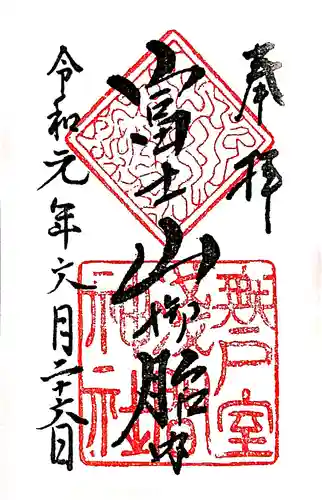 奉拝
富士山御胎内
令和元年六月二十六日
無戸室
浅間
神社